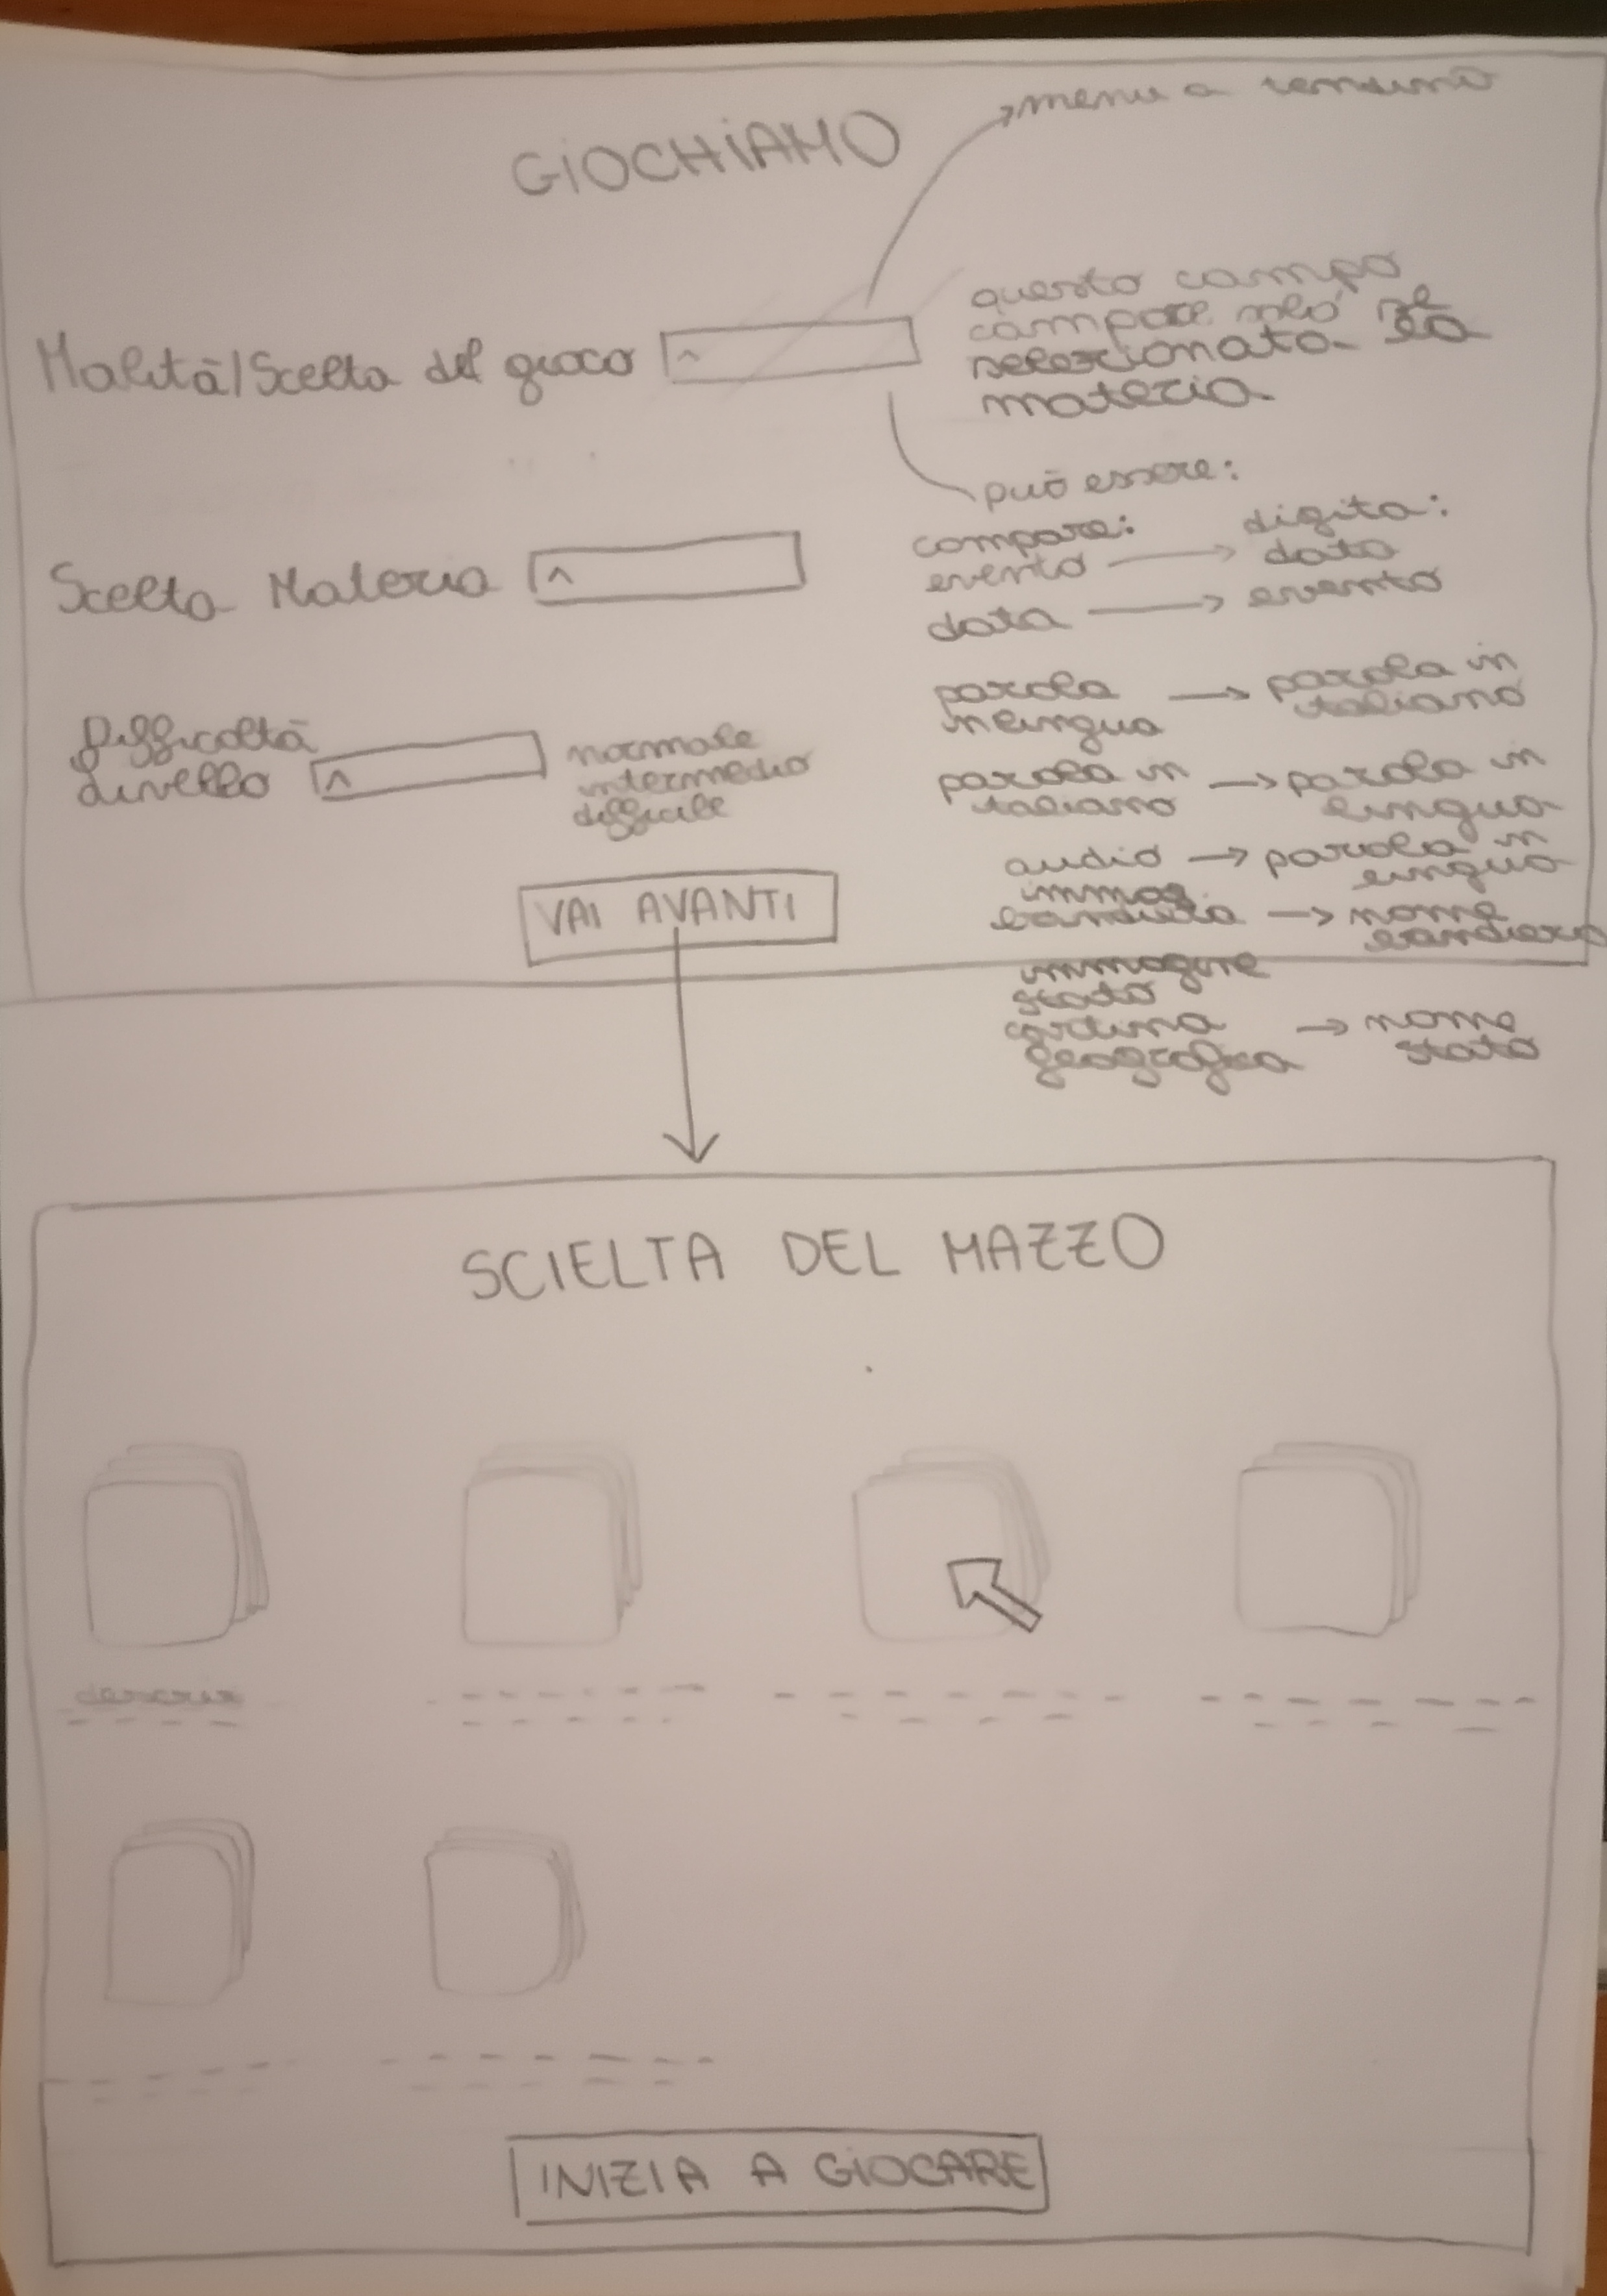 GIOCHIAMO
menu a
Malità/Scelta del gioco
questo campo
compare solo se
selezionato la
materia
può essere:
compare: digita:
evento → data
data → evento
Scelta Materia
parola → parola in
in lingua italiano
Difficoltà
livello
normale
intermedio
difficile
parola in → parola in
italiano lingua
audio → parola in
lingua
immag.
→ nome
bandiera
VAI AVANTI
immagine
stato
cartina → nome
geografica stato
SCIELTA DEL MAZZO
INIZIA A GIOCARE